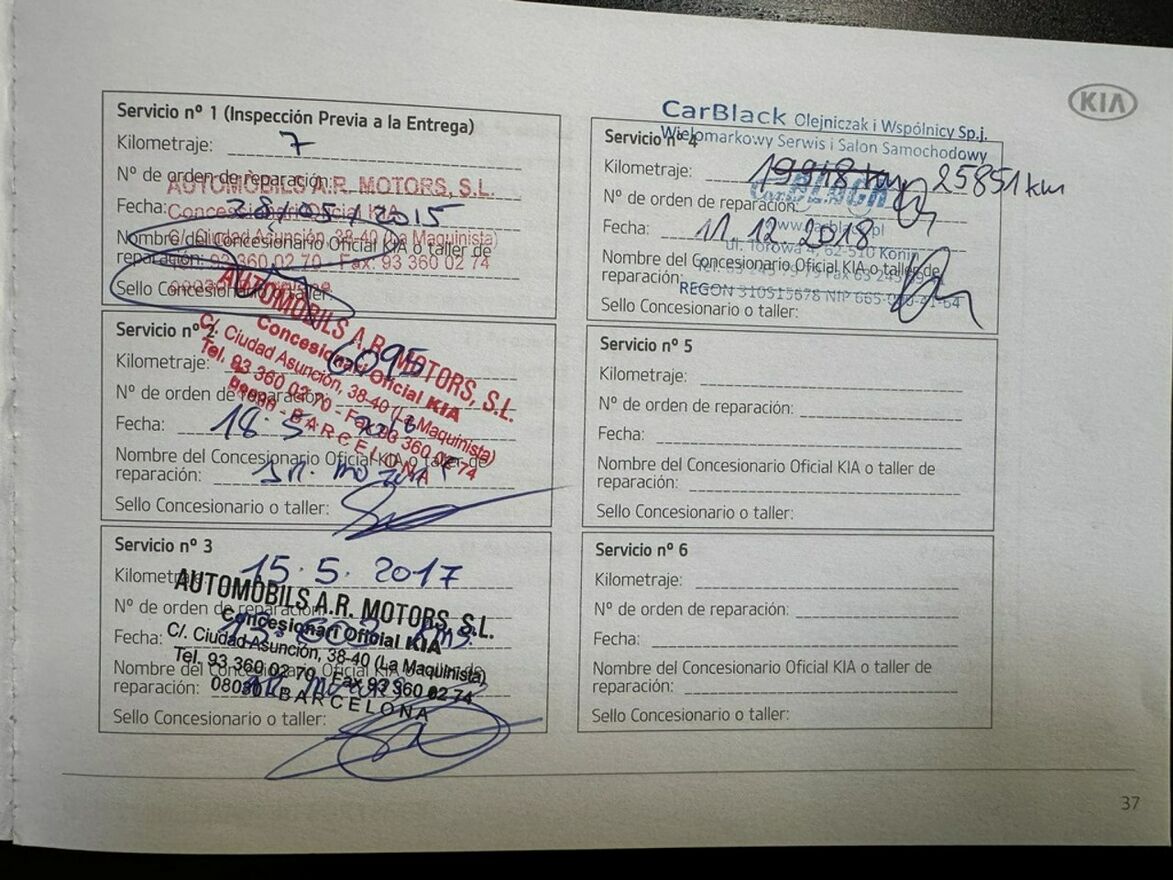 KIA
Servicio nº 1 (Inspección Previa a la Entrega)
Kilometraje: 7
Nº de orden de reparación:
AUTOMOBILS A.R. MOTORS, S.L.
Fecha: 28/05/2015
Concesionari Oficial KIA
C/. Ciudad Asunción, 38-40 (La Maquinista)
Nombre del Concesionario Oficial KIA o taller de
reparación:
93 360 02 70 Fax: 93 360 02 74
Sello Concesionario o taller:
Servicio nº 2
Kilometraje: 6095
Nº de orden de reparación:
Fecha: 18. 5
Nombre del Concesionario Oficial KIA o taller de
reparación:
Sello Concesionario o taller:
AUTOMOBILS A.R. MOTORS, S.L.
Concesionari Oficial KIA
C/. Ciudad Asunción, 38-40 (La Maquinista)
Tel. 93 360 02 70 - Fax 93 360 02 74
BARCELONA
Servicio nº 3
Kilometraje: 15. 5. 2017
Nº de orden de reparación:
Fecha: Kms.
Nombre del Concesionario Oficial KIA o taller de
reparación:
Sello Concesionario o taller:
AUTOMOBILS A.R. MOTORS, S.L.
Concesionari Oficial KIA
C/. Ciudad Asunción, 38-40 (La Maquinista)
Tel. 93 360 02 70 Fax 93 360 02 74
BARCELONA
CarBlack Olejniczak i Wspólnicy Sp.j.
Wielomarkowy Serwis i Salon Samochodowy
Servicio nº 4
Kilometraje: 25851 km
Nº de orden de reparación:
Fecha: 11. 12. 2018
ul. Torowa 4, 62-510 Konin
Nombre del Concesionario Oficial KIA o taller de
reparación:
REGON 310515678 NIP
Sello Concesionario o taller:
Servicio nº 5
Kilometraje:
Nº de orden de reparación:
Fecha:
Nombre del Concesionario Oficial KIA o taller de
reparación:
Sello Concesionario o taller:
Servicio nº 6
Kilometraje:
Nº de orden de reparación:
Fecha:
Nombre del Concesionario Oficial KIA o taller de
reparación:
Sello Concesionario o taller:
37